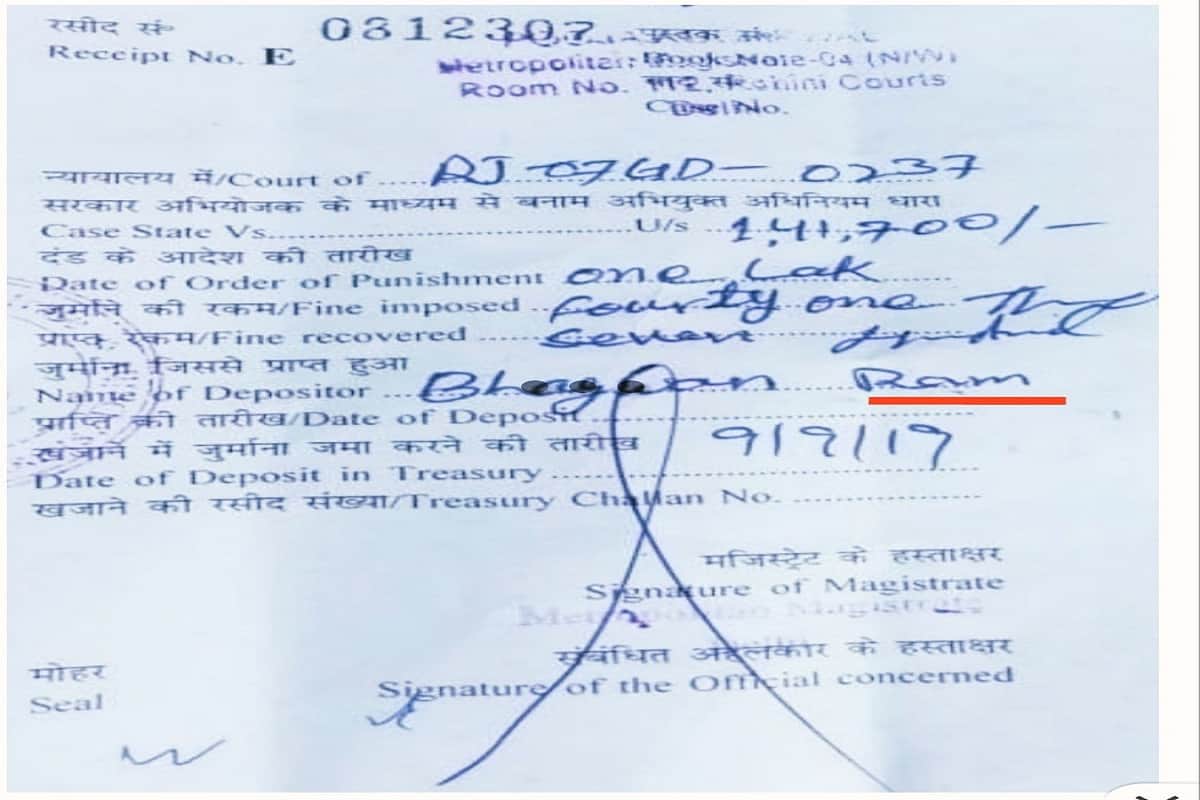 रसीद सं॰ 0312307 पुस्तक सं॰
Receipt No. E Metropolitan Book No. -04 (N/W)
Room No. 112, Rohini Courts
No.
न्यायालय में/Court of ..... RJ-07GD-0237
सरकार अभियोजक के माध्यम से बनाम अभियुक्त अधिनियम धारा
Case State Vs. U/s 1,41,700/-
दंड के आदेश की तारीख
Date of Order of Punishment one Lak
जुर्माने की रकम/Fine imposed Fourty one
प्राप्त रकम/Fine recovered Seven
जुर्माना जिससे प्राप्त हुआ
Name of Depositor Ram
प्राप्ति की तारीख/Date of Deposit
खजाने में जुर्माना जमा करने की तारीख 9/9/19
Date of Deposit in Treasury
खजाने की रसीद संख्या/Treasury Challan No.
मजिस्ट्रेट के हस्ताक्षर
Signature of Magistrate
Metropolitan Magistrate
संबंधित अहलकार के हस्ताक्षर
मोहर
Signature of the Official concerned
Seal